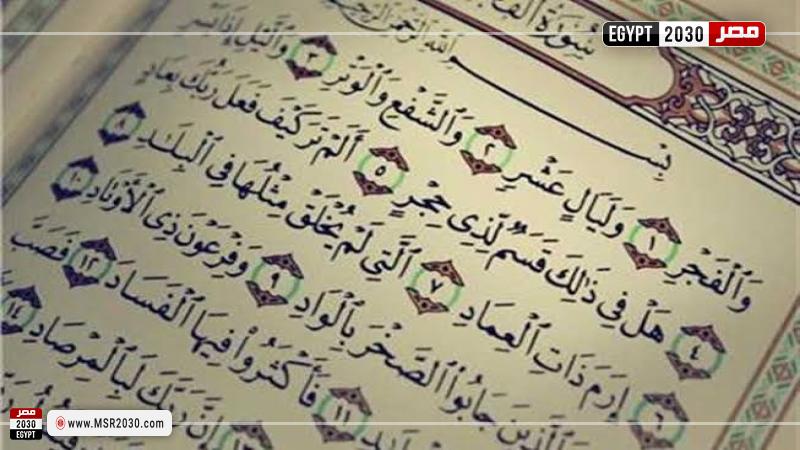 EGYPT 2030 مصر
سُورَةُ
بِسْمِ ٱللَّهِ ٱلرَّحْمَٰنِ ٱلرَّحِيمِ
وَٱلْفَجْرِ ١ وَلَيَالٍ عَشْرٍ ٢ وَٱلشَّفْعِ وَٱلْوَتْرِ ٣ وَٱلَّيْلِ إِذَا يَسْرِ
٤ هَلْ فِى ذَٰلِكَ قَسَمٌ لِّذِى حِجْرٍ ٥ أَلَمْ تَرَ كَيْفَ فَعَلَ رَبُّكَ بِعَادٍ
٦ إِرَمَ ذَاتِ ٱلْعِمَادِ ٧ ٱلَّتِى لَمْ يُخْلَقْ مِثْلُهَا فِى ٱلْبِلَٰدِ ٨
ٱلَّذِينَ جَابُوا۟ ٱلصَّخْرَ بِٱلْوَادِ ٩ وَفِرْعَوْنَ ذِى ٱلْأَوْتَادِ ١٠
١١ فَأَكْثَرُوا۟ فِيهَا ٱلْفَسَادَ ١٢ فَصَبَّ
إِنَّ رَبَّكَ لَبِٱلْمِرْصَادِ ١٤
مصر
2030
EGYPT
www.MSR2030.com